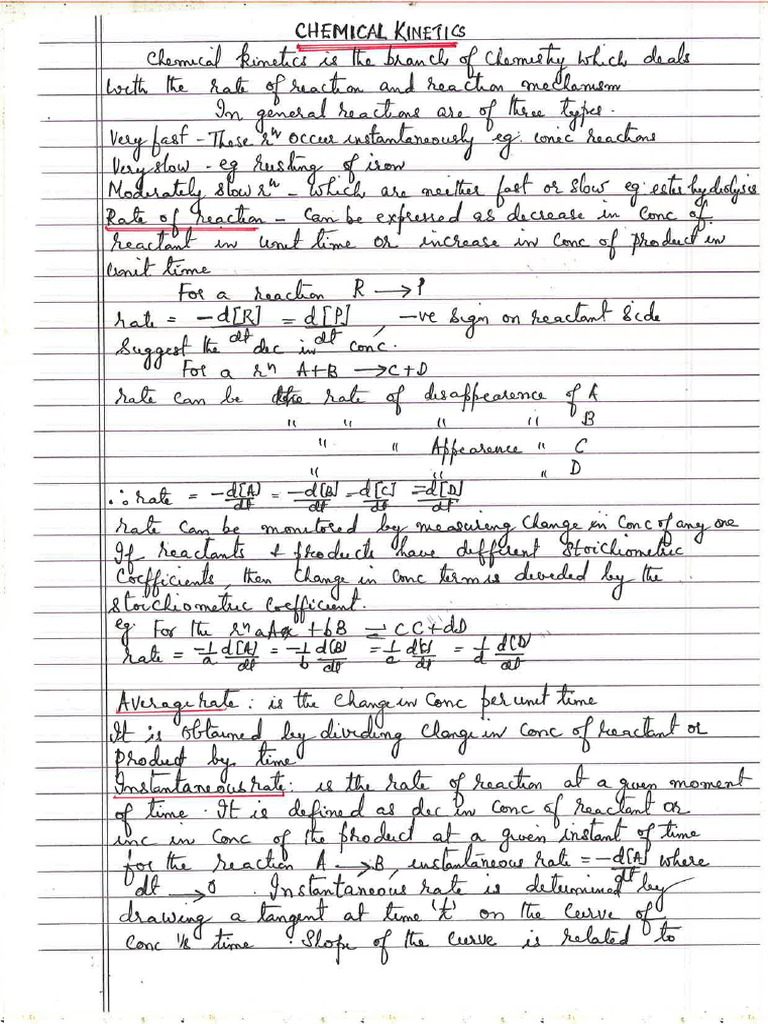 CHEMICAL KINETICS
Chemical kinetics is the branch of Chemistry which deals
with the rate of reaction and reaction mechanism
In general reactions are of three types.
Very fast - These rⁿ occur instantaneously eg. ionic reactions
Very slow - eg rusting of iron
Moderately slow rⁿ - which are neither fast or slow eg: ester hydrolysis
Rate of reaction - Can be expressed as decrease in conc of
reactant in unit time or increase in conc of product in
unit time
For a reaction R → P
rate = -d[R]/dt = d[P]/dt, -ve sign on reactant side
Suggest the dec in conc.
For a rⁿ A+B → C+D
rate can be the rate of disappearence of A
" " " " B
" " Appearence " C
" " " D
∴ rate = -d[A]/dt = -d[B]/dt = d[C]/dt = d[D]/dt
rate can be monitored by measuring change in conc of any one
If reactants + products have different stoichiometric
Coefficients, then change in conc term is devided by the
Stoichiometric Coefficient.
eg. For the rⁿ aA + bB ⇌ CC + dD
rate = -1/a d[A]/dt = -1/b d[B]/dt = 1/c d[C]/dt = 1/d d[D]/dt
Average rate: is the change in conc per unit time
It is obtained by dividing change in conc of reactant or
product by time
Instantaneous rate: is the rate of reaction at a given moment
of time. It is defined as dec in conc of reactant or
inc in conc of the product at a given instant of time
for the reaction A → B, instantaneous rate = -d[A]/dt where
dt → 0. Instantaneous rate is determined by
drawing a tangent at time 't' on the curve of
conc v/s time. Slope of the curve is related to